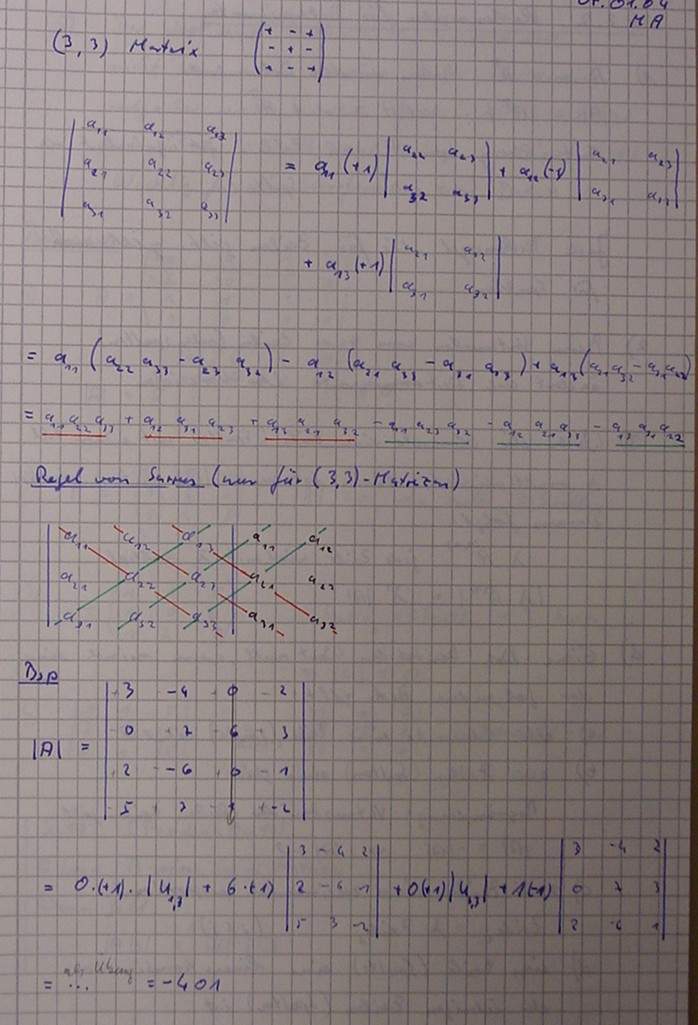 01.04
MA
(3,3) Matrix
+ - +
- + -
+ - +
a₁₁ a₁₂ a₁₃
a₂₁ a₂₂ a₂₃ = a₁₁(+1) | a₂₂ a₂₃ | + a₁₂(-1) | a₂₁ a₂₃ |
a₃₁ a₃₂ a₃₃ | a₃₂ a₃₃ | | a₃₁ a₃₃ |
+ a₁₃(+1) | a₂₁ a₂₂ |
| a₃₁ a₃₂ |
= a₁₁(a₂₂ a₃₃ - a₂₃ a₃₂) - a₁₂(a₂₁ a₃₃ - a₃₁ a₂₃) + a₁₃(a₂₁ a₃₂ - a₃₁ a₂₂)
= a₁₁ a₂₂ a₃₃ + a₁₂ a₃₁ a₂₃ + a₁₃ a₂₁ a₃₂ - a₁₁ a₂₃ a₃₂ - a₁₂ a₂₁ a₃₃ - a₁₃ a₃₁ a₂₂
Regel von Sarrus (nur für (3,3)-Matrizen)
a₁₁ a₁₂ a₁₃ | a₁₁ a₁₂
a₂₁ a₂₂ a₂₃ | a₂₁ a₂₂
a₃₁ a₃₂ a₃₃ | a₃₁ a₃₂
Bsp
3 -4 0 2
0 7 6 3
|A| =
2 -6 0 1
5 3 1 -2
3 -4 2 3 -4 2
= 0·(+1)·|U₁,₃| + 6·(-1) | 2 -6 1 | + 0(+1)|U₃,₃| + 1(-1) | 0 7 3 |
5 3 -2 2 -6 1
als Übung
= ... = -401